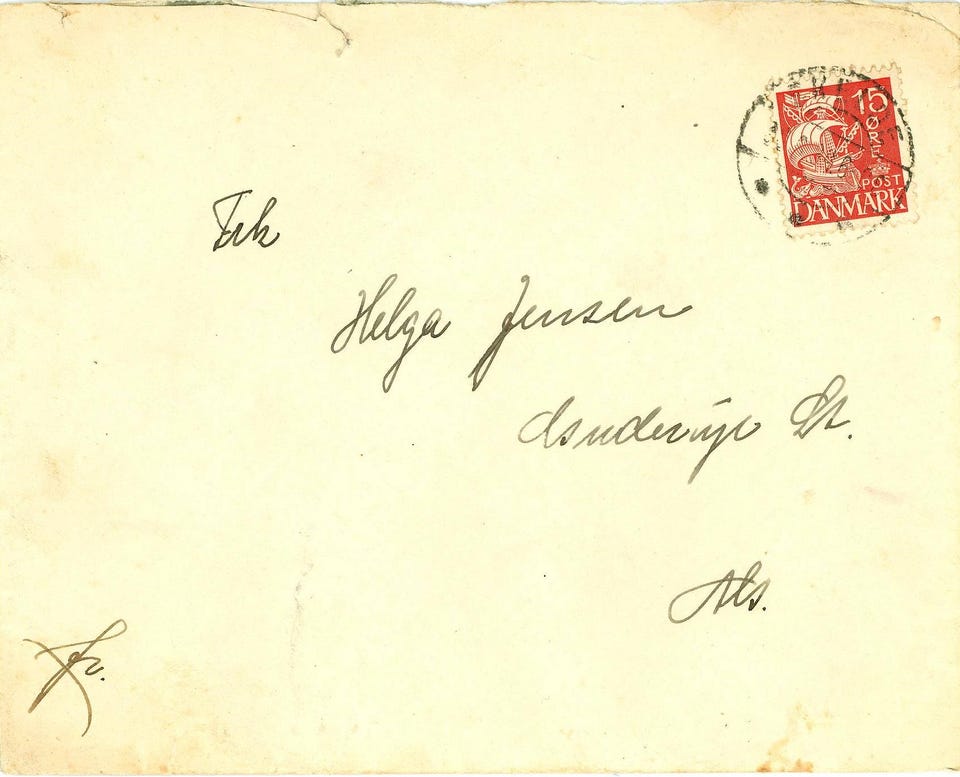 15
ØRE
POST
DANMARK
Frk
Helga Jensen
St.
Als.
fr.